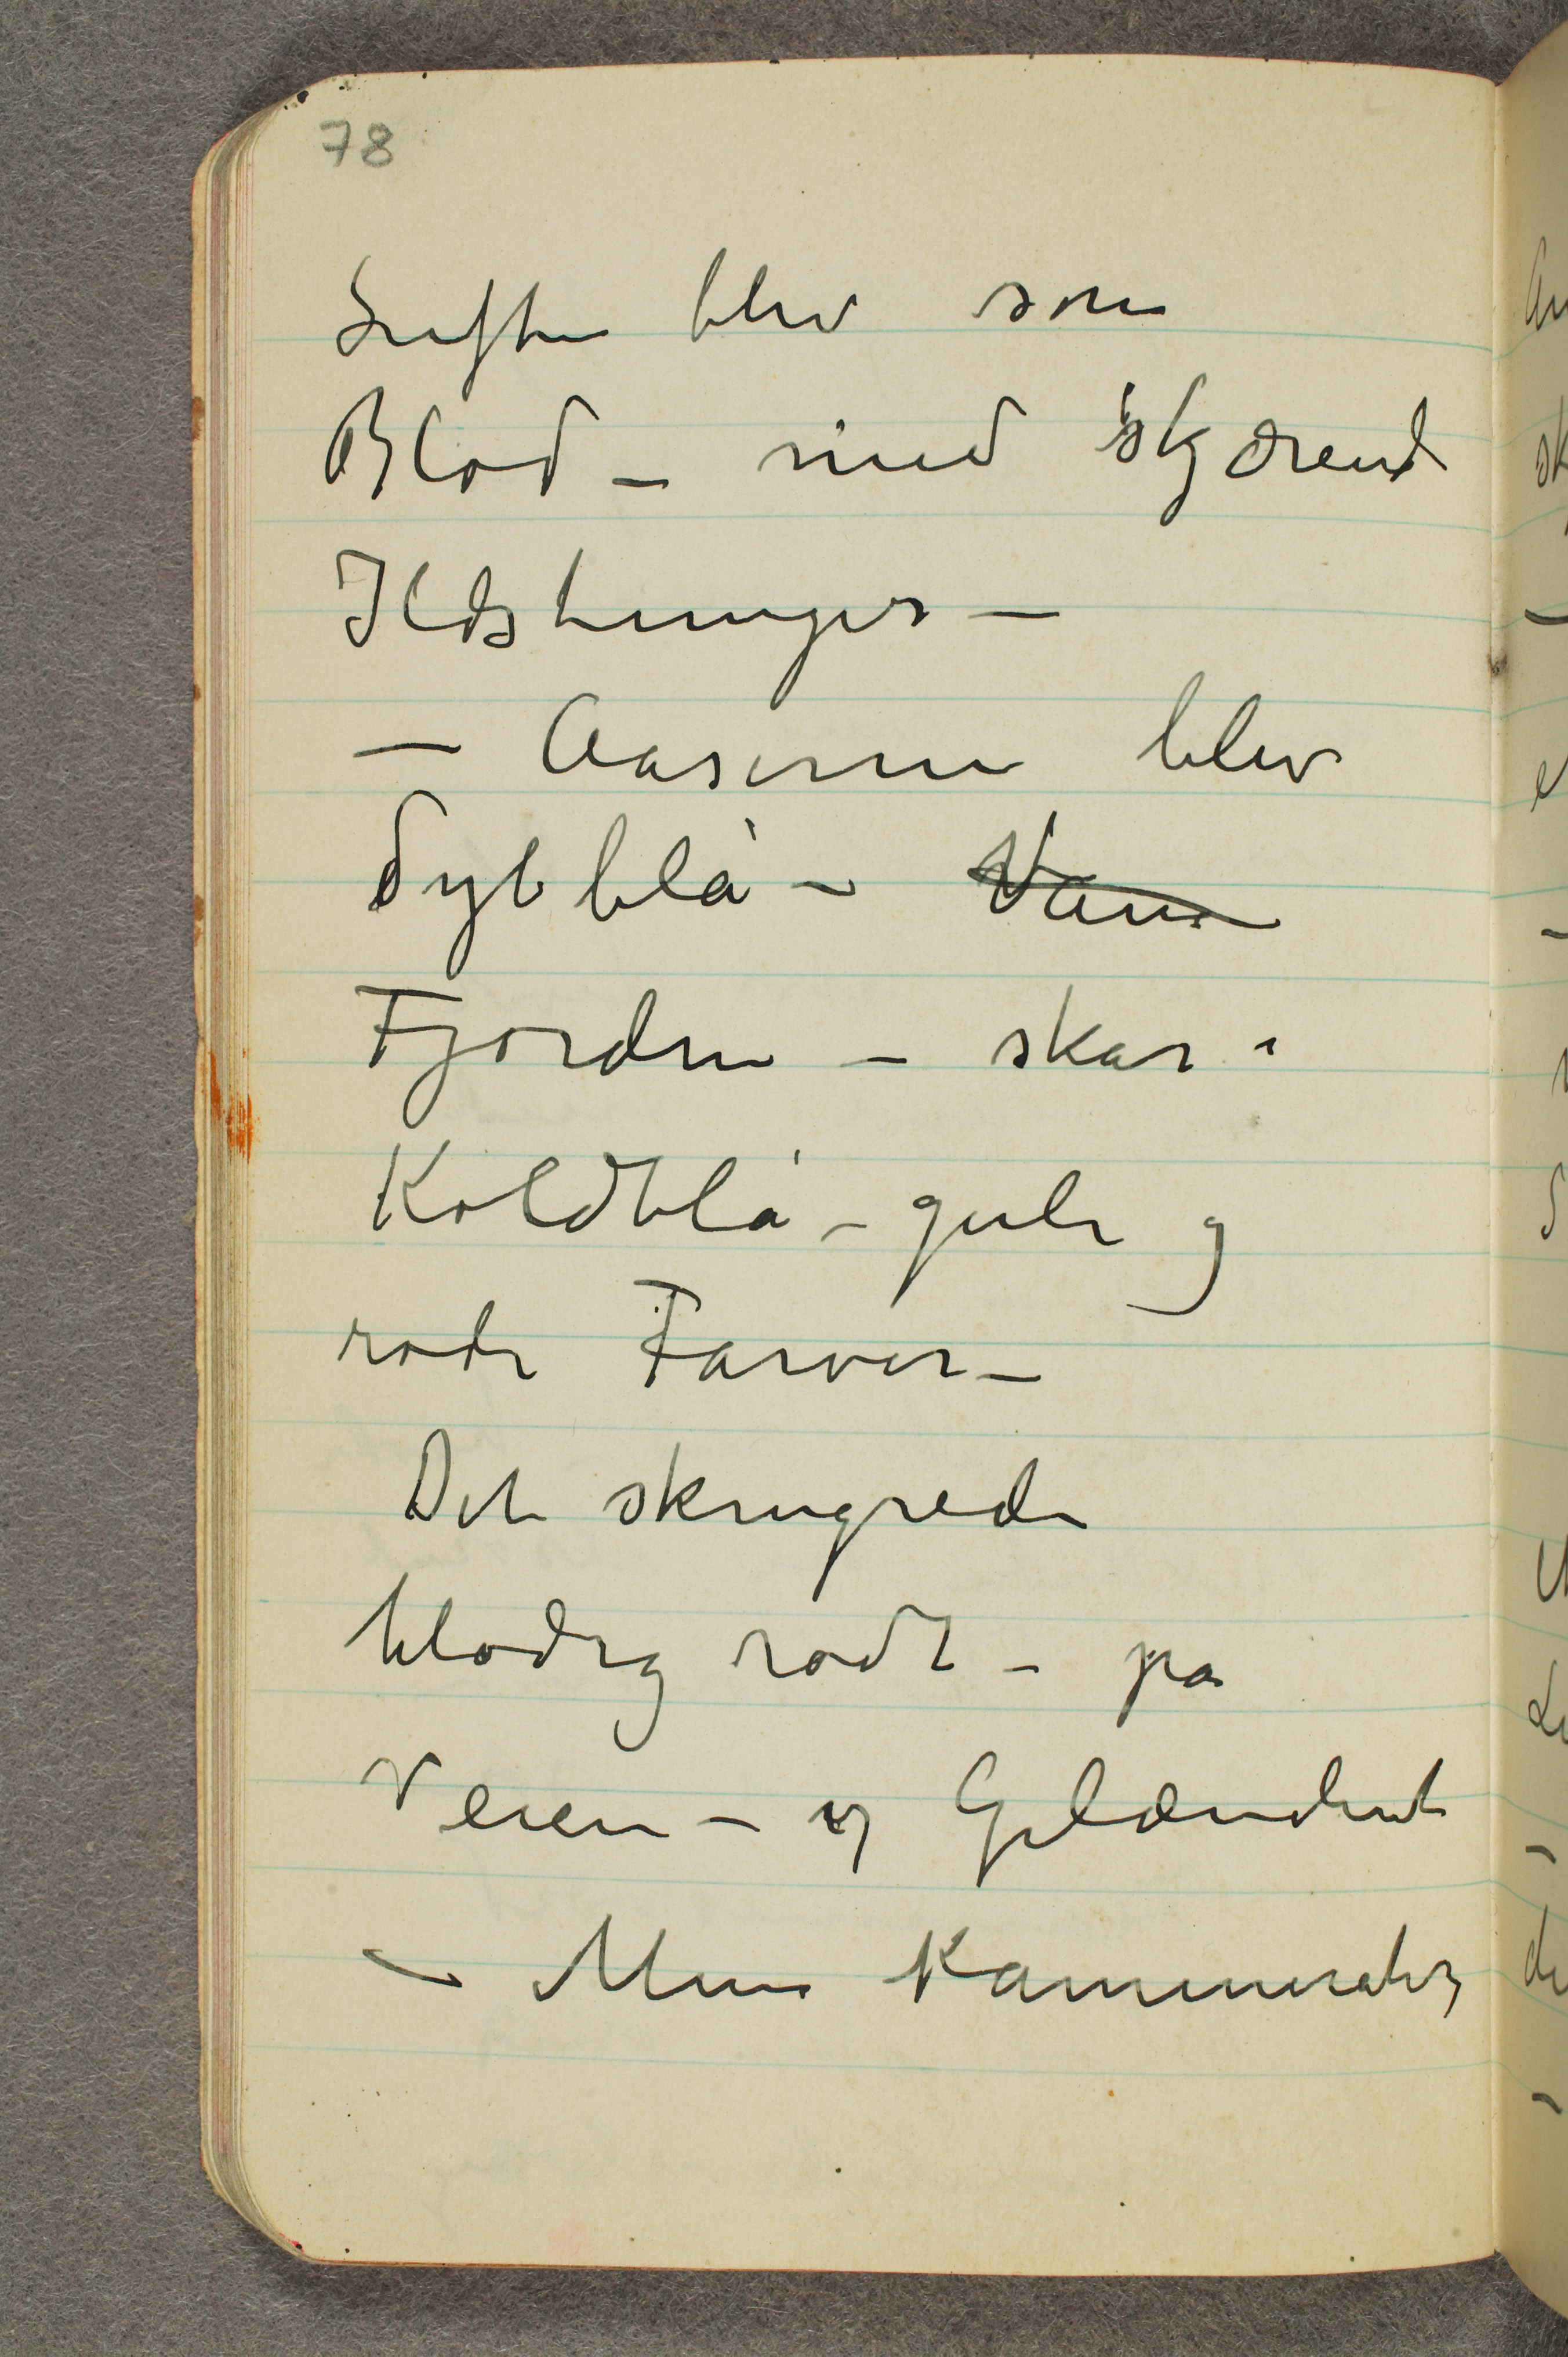 78
Luften blev som
Blod – med skjærende
Ildstunger –
– Aaserne blev
dybblå – Vann
Fjorden – skar i
Koldblå – gule og
røde Farver –
Det skingrede
blodig rødt – på
Veien – og Gjelænderet
– Mine Kammeraters